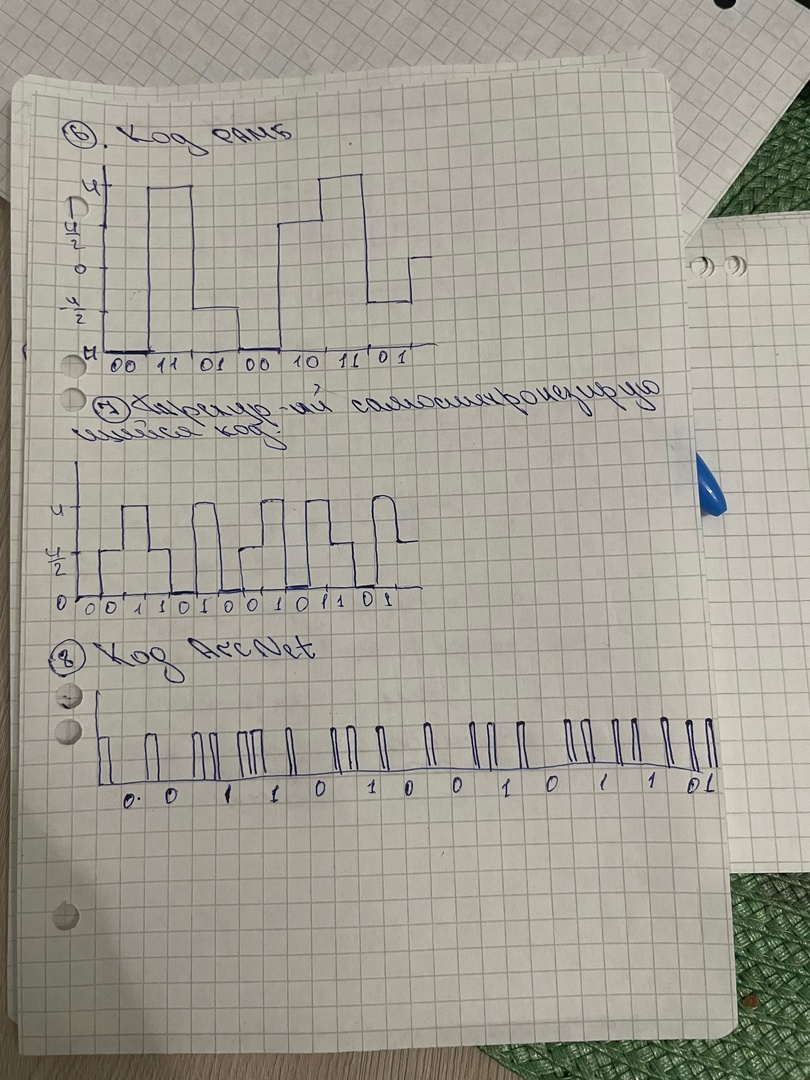 6. Код PAM5
u
u/2
0
-u/2
-u
00 11 01 00 10 11 01
7 самосинхронизирую
щийся код:
u
u/2
0 0 0 1 1 0 1 0 0 1 0 1 1 0 1
8 Код ArcNet
0. 0 1 1 0 1 0 0 1 0 1 1 0 1